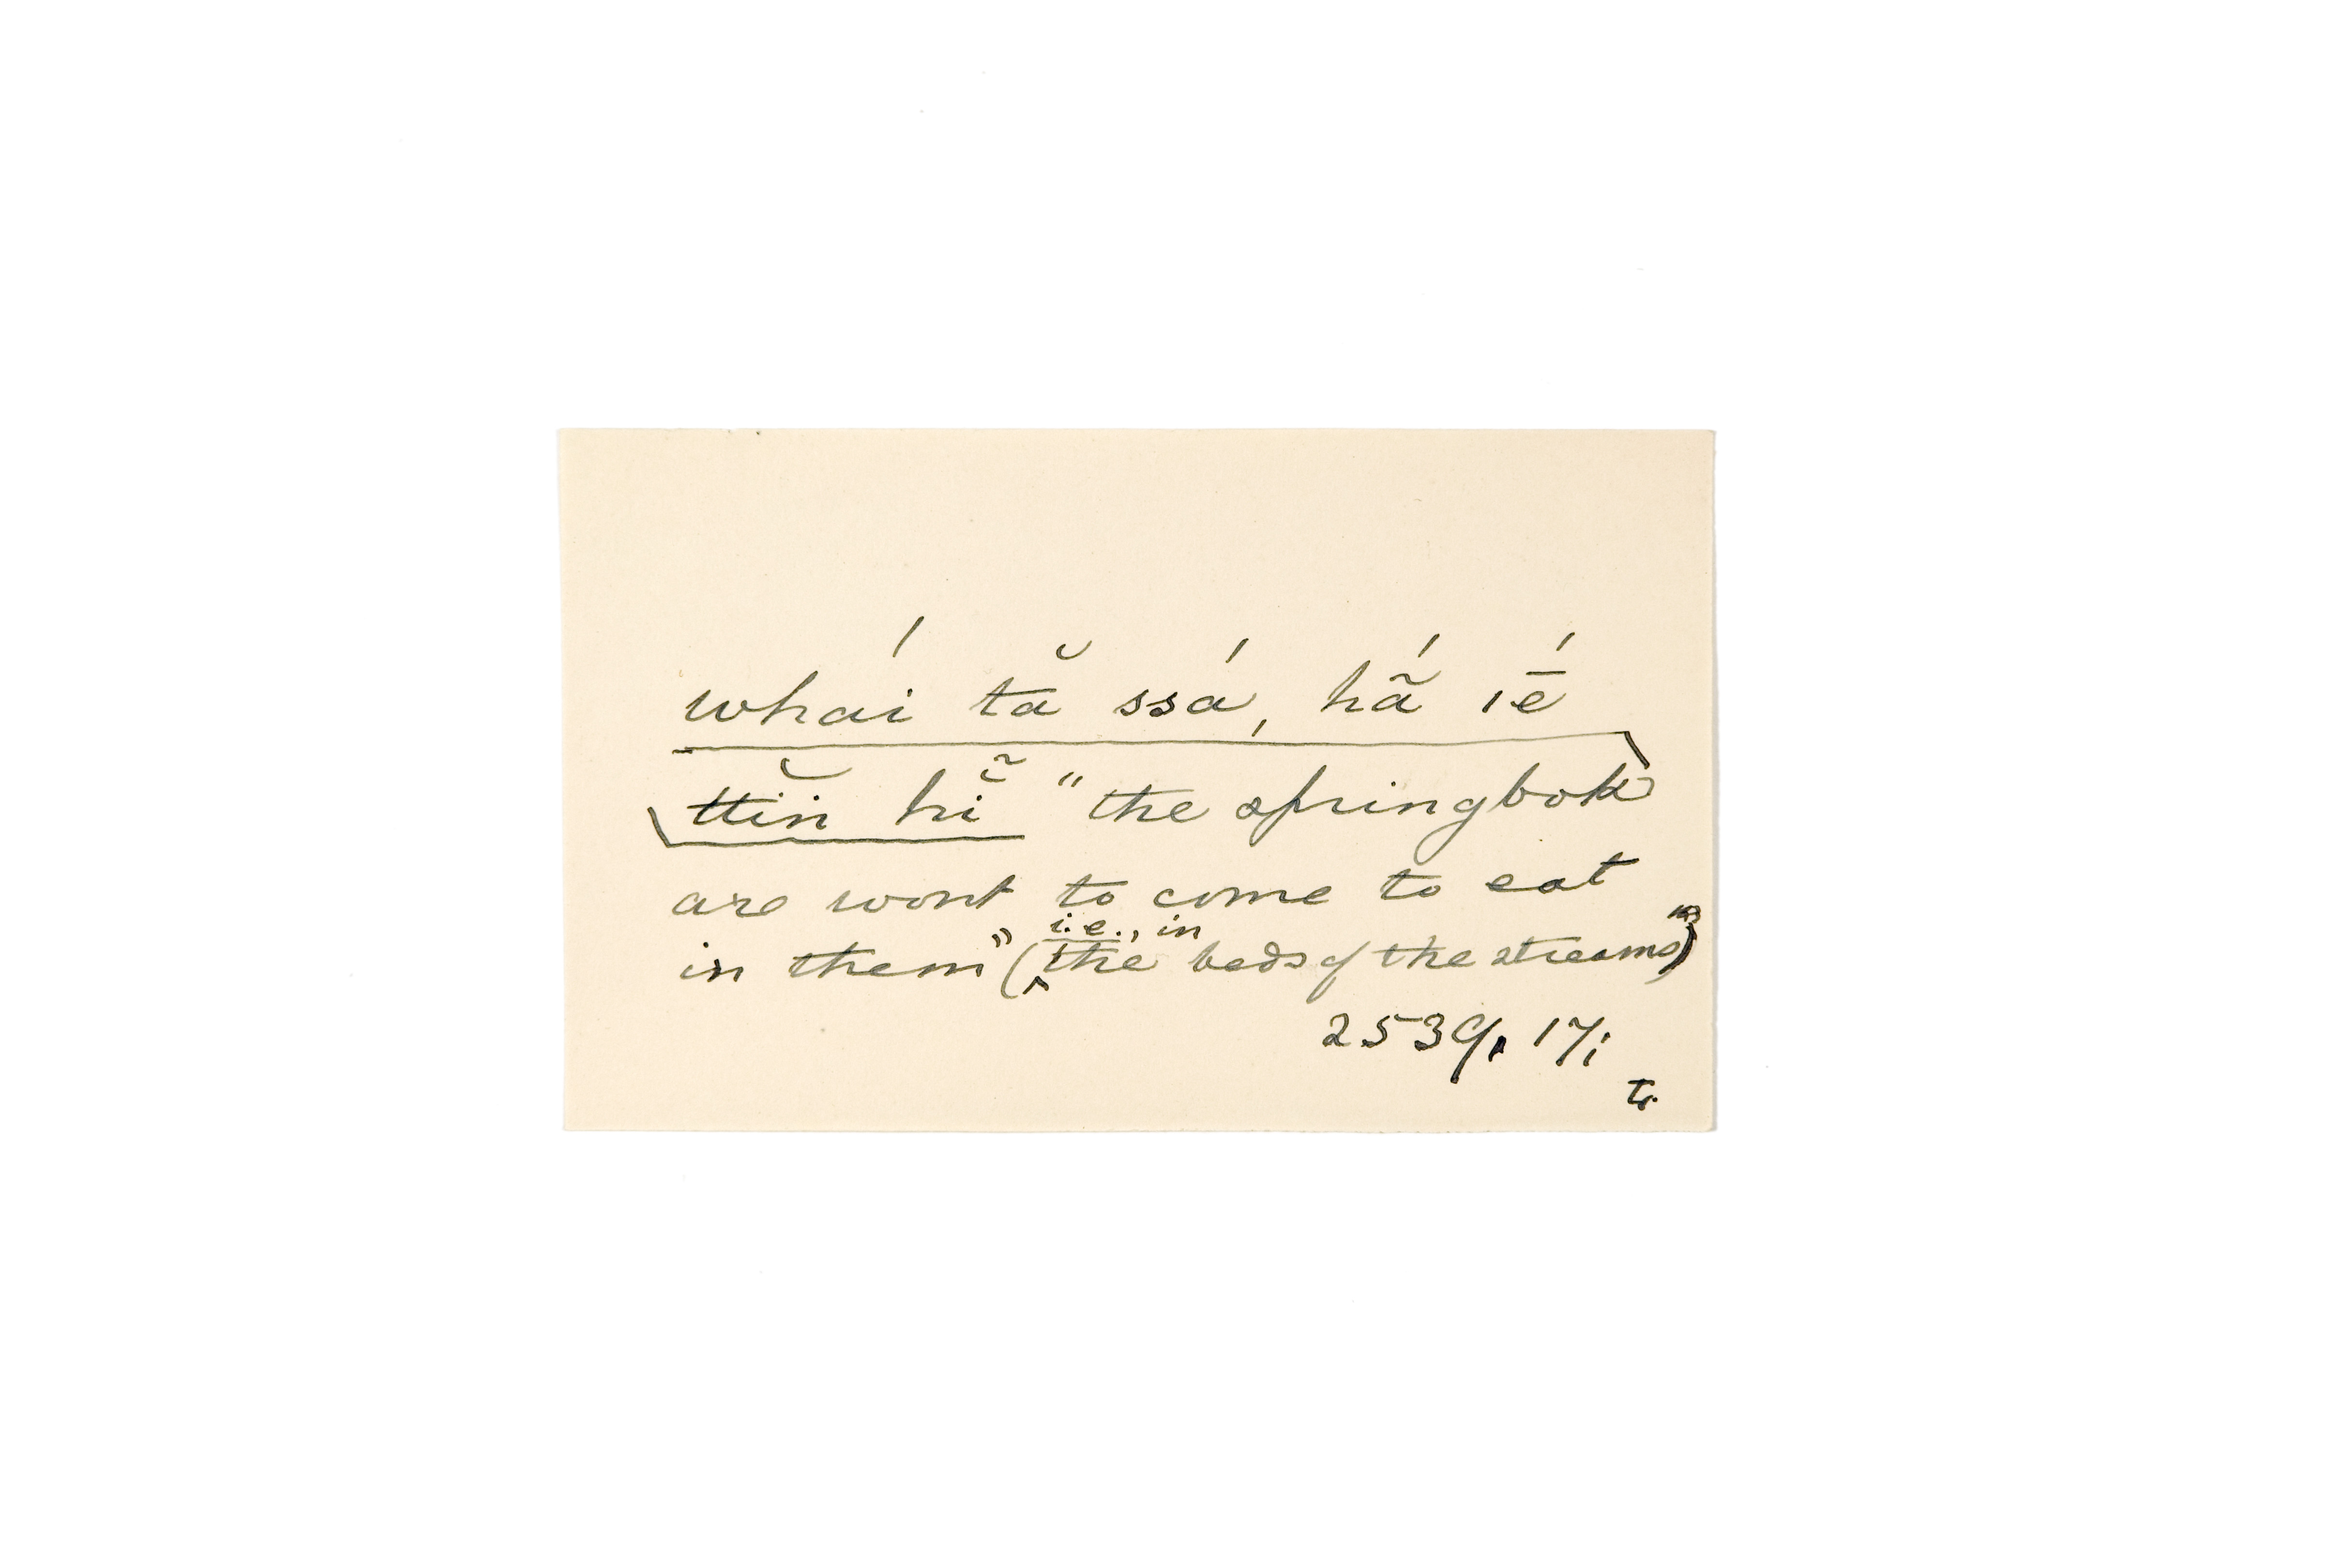 whái tă ssá, hã́ ıḗ
ttĭn hĭ̃ "the springbok
are wont to come to eat
in them" (i.e., in the beds of the streams)
2539. 17;